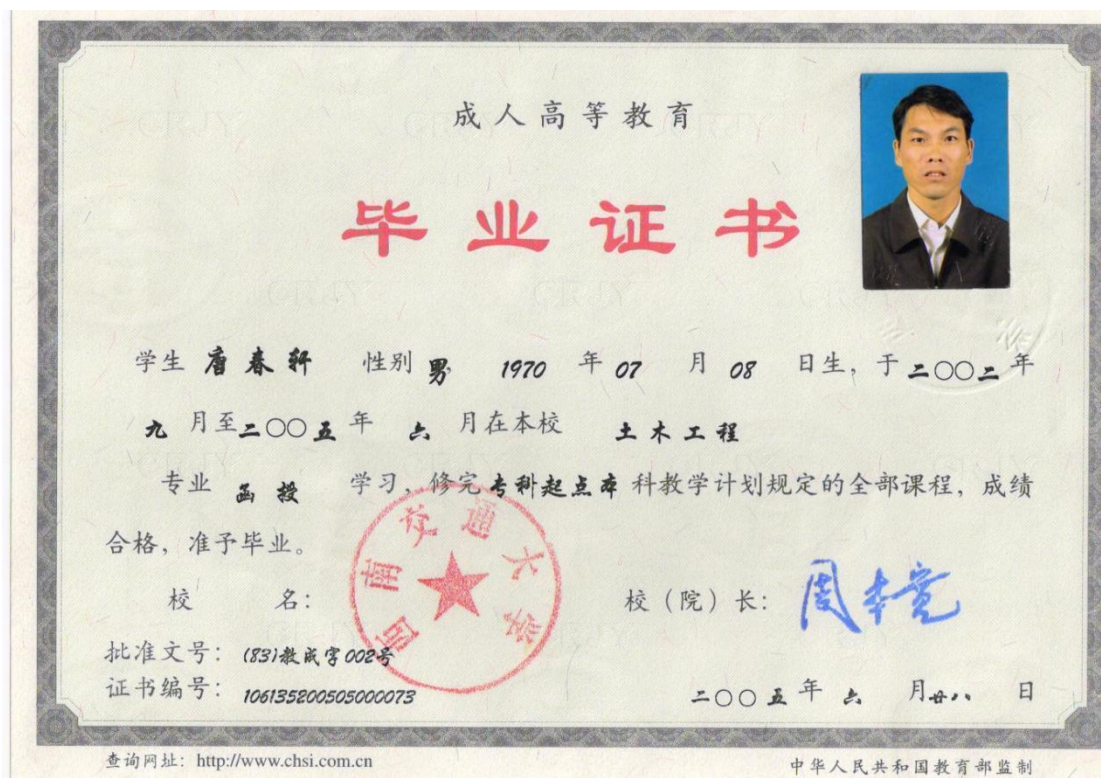 成人高等教育
毕业证书
学生 唐春轩 性别 男, 1970 年 07 月 08 日生, 于 二〇〇二 年
九 月至 二〇〇五 年 六 月在本校 土木工程
专业 函授 学习, 修完 专科起点本 科教学计划规定的全部课程, 成绩
合格, 准予毕业。
西南交通大学
校 名: 校(院)长: 周本宽
批准文号: (83)教成字002号
证书编号: 106135200505000073 二〇〇五 年 六 月 廿八 日
查询网址: http://www.chsi.com.cn 中华人民共和国教育部监制